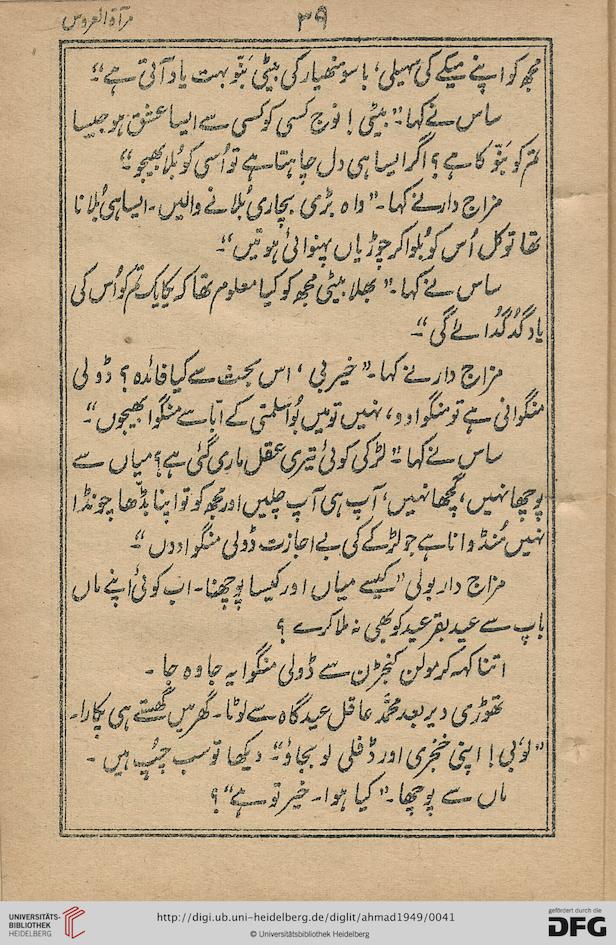 مرآۃ العروس
۳۹
مجھ کو اپنے میکے کی سہیلی، باسو منھیار کی بیٹی بَنّو بہت یاد آتی ہے“۔
ساس نے کہا۔ ”بیٹی! نوج کسی کو کسی سے ایسا عشق ہو جیسا
تم کو بَنّو کا ہے؟ اگر ایسا ہی دل چاہتا ہے تو اُسی کو بُلا بھیجو۔“
مزاج دار نے کہا۔ ”واہ بڑی بچاری بُلانے والیں۔ ایسا ہی بُلانا
تھا تو کل اُس کو بُلوا کر چوڑیاں پہنوائی ہوتیں“۔
ساس نے کہا۔ ”بھلا بیٹی مجھ کو کیا معلوم تھا کہ یکایک تم کو اُس کی
یاد گُدگُدائے گی“۔
مزاج دار نے کہا۔ ”خیر بی، اس بحث سے کیا فائدہ؟ ڈولی
منگوانی ہے تو منگوا دو، نہیں تو میں بُوا سلمتی کے ابّا سے منگوا بھیجوں“۔
ساس نے کہا۔ ”لڑکی کوئی تیری عقل ماری گئی ہے؟ میاں سے
پوچھا نہیں، گچھا نہیں، آپ ہی آپ چلیں اور مجھ کو تو اپنا بڈّھا چونڈا
نہیں مُنڈوانا ہے جو لڑکے کی بے اجازت ڈولی منگوا دوں“۔
مزاج دار بولی ”کیسے میاں اور کیسا پوچھنا۔ اب کوئی اپنے ماں
باپ سے عید بقر عید کو بھی نہ ملا کرے؟
اتنا کہہ کر مولن کنجڑن سے ڈولی منگوا یہ جا وہ جا۔
تھوڑی دیر بعد محمّد عاقل عید گاہ سے لوٹا۔ گھر میں گھستے ہی پکارا۔
”لو بی! اپنی خنجری اور ڈفلی لو بجاؤ“۔ دیکھا تو سب چُپ ہیں۔
ماں سے پوچھا۔ ”کیا ہوا۔ خیر تو ہے“؟
UNIVERSITÄTS-
BIBLIOTHEK
HEIDELBERG
http://digi.ub.uni-heidelberg.de/diglit/ahmad1949/0041
© Universitätsbibliothek Heidelberg
gefördert durch die
DFG